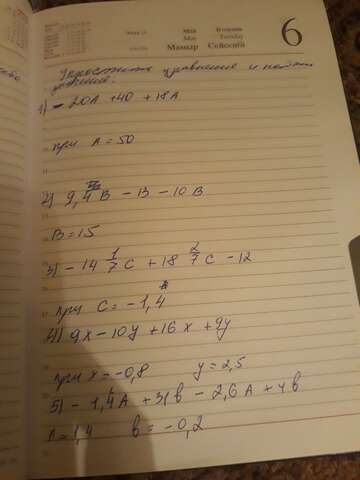 6
Май Вторник
May Tuesday
Мамыр Сейсенбі
Упростите уравнение и найти
1) -20A + 40 + 18A
при A = 50
2) 9,4B - 13 - 10B
B = 15
3) -14 1/7 C + 18 2/7 C - 12
при C = -1,4
4) 9x - 10y + 16x + 9y
при x = -0,8 y = 2,5
5) - 1,4A + 31b - 2,6A + 4b
A = 1,4 b = -0,2